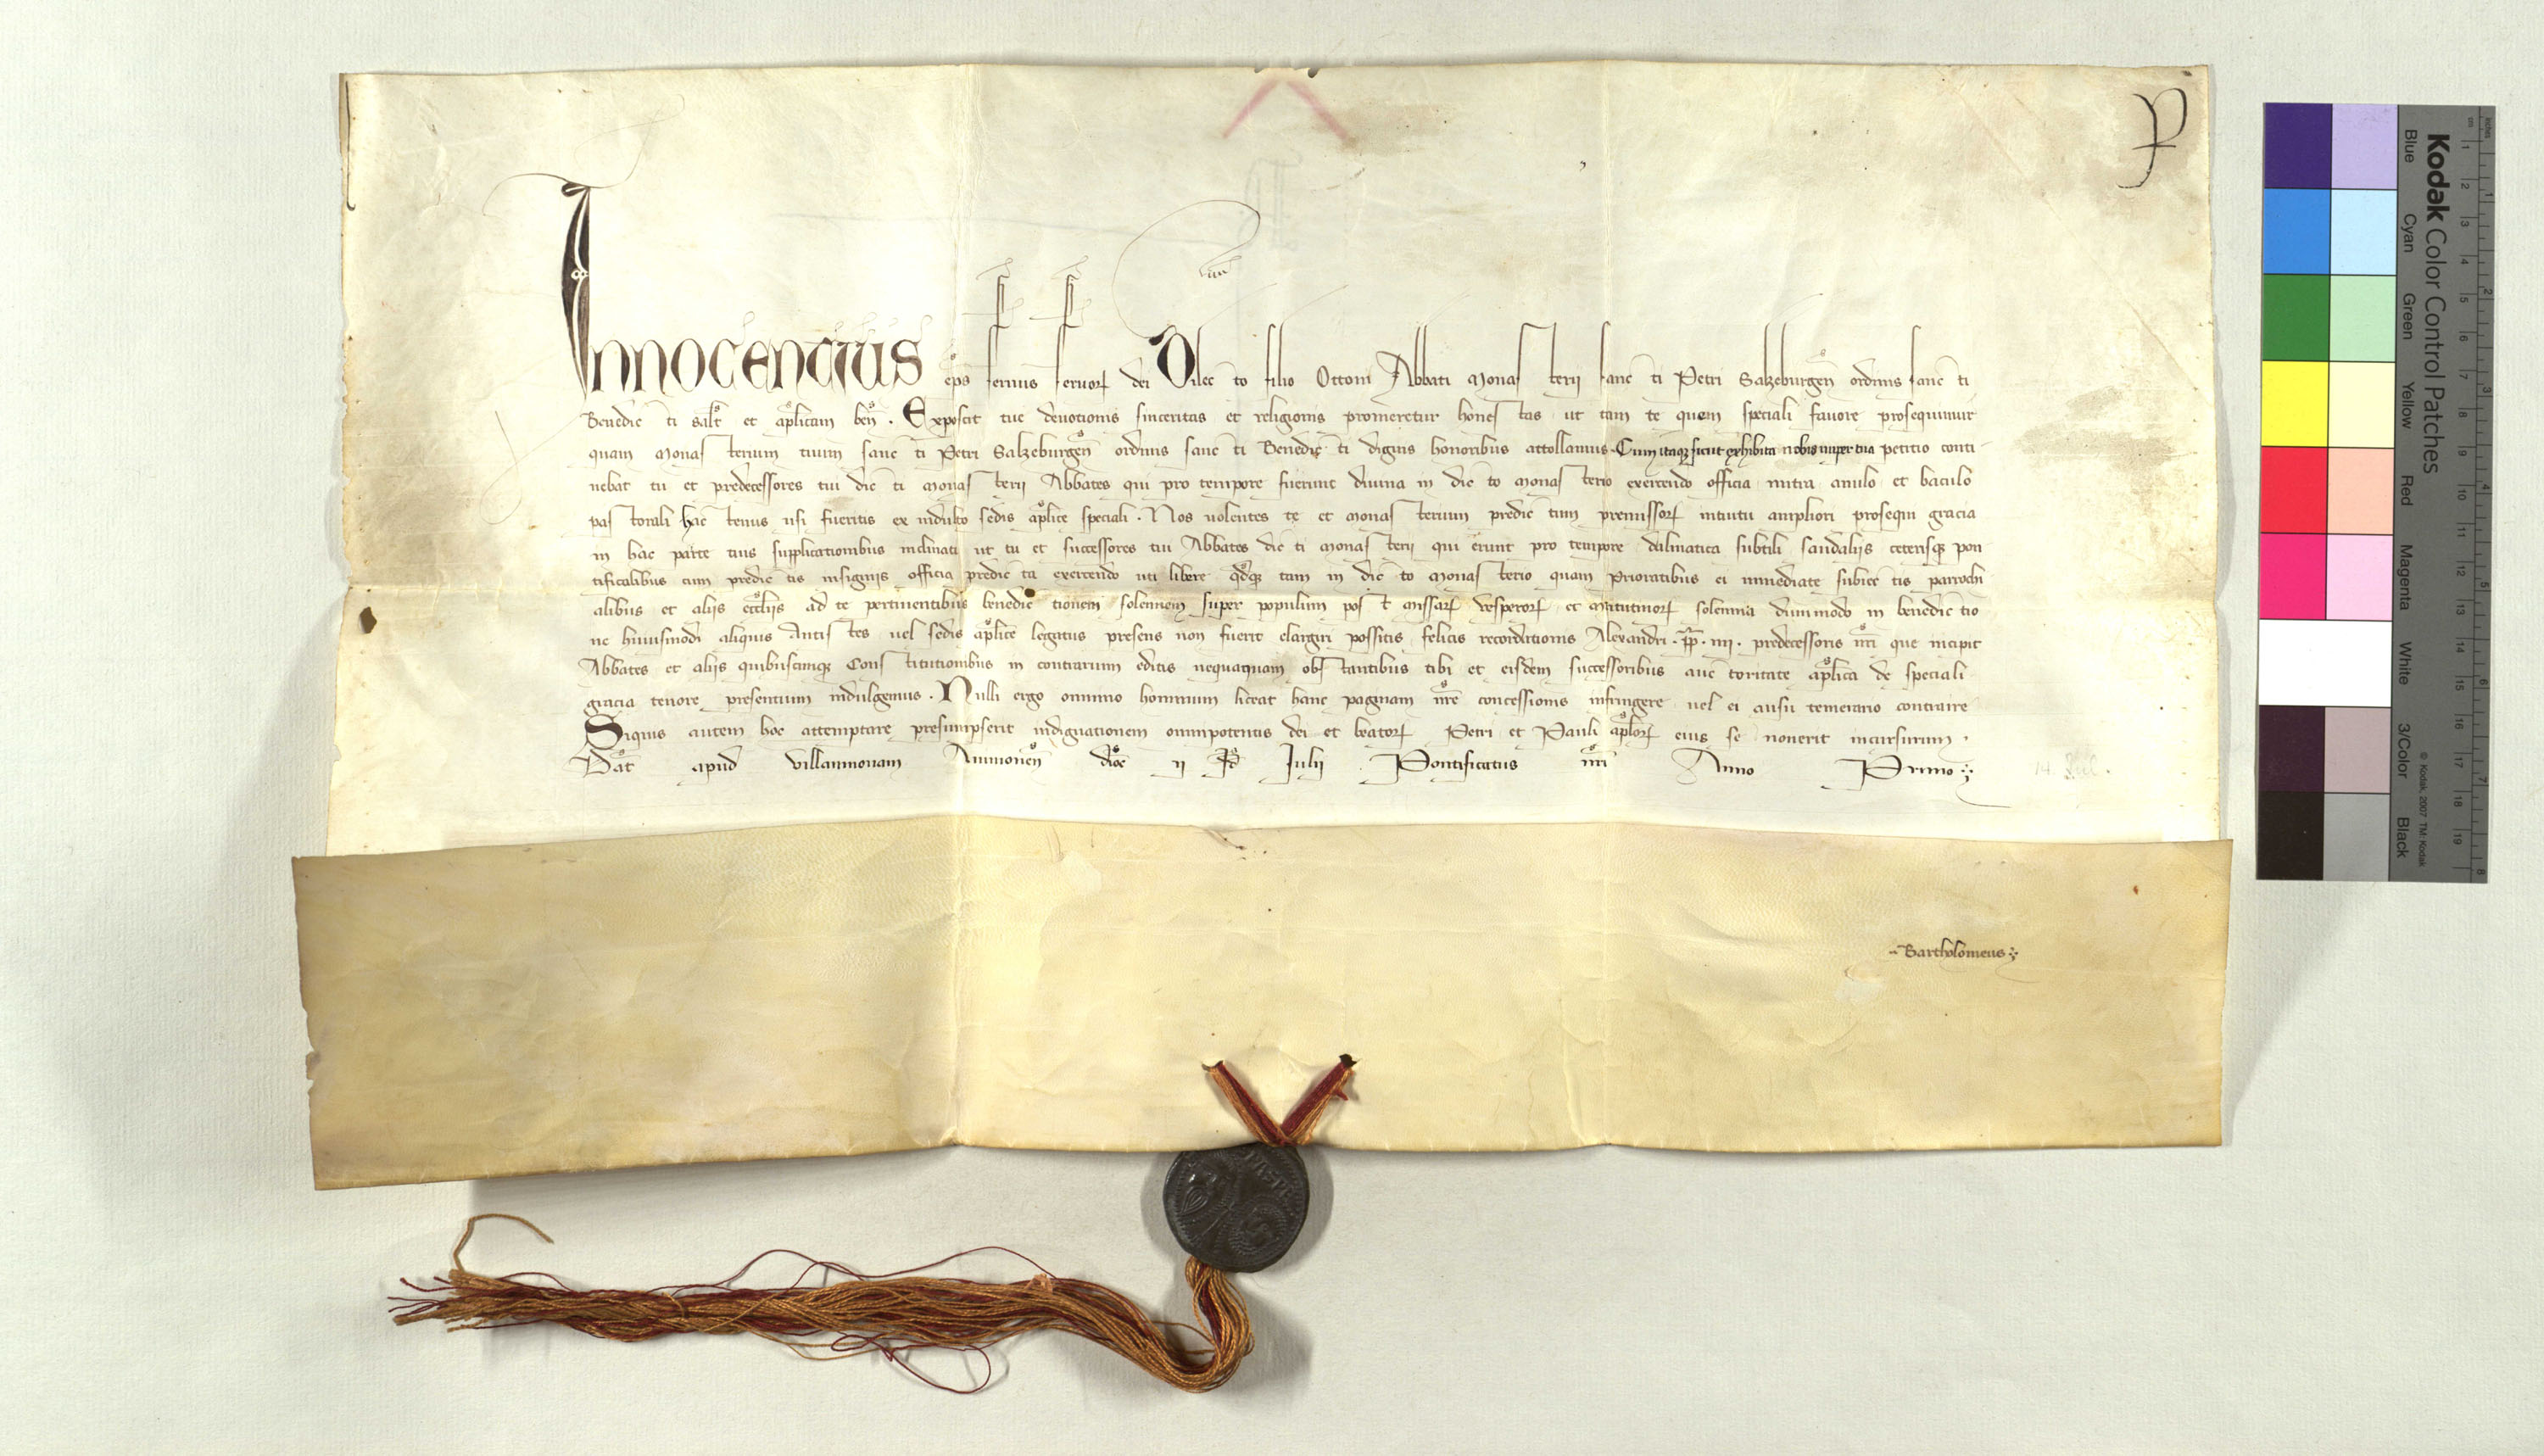 P
Innocentius ep̄s seruus seruoꝝ dei Dilecto filio Ottoni Abbati Monasterii sancti Petri Salzeburgeñ ordinis sancti
Benedicti salt̄ et apl̄icam beñ. Exposcit tue deuotionis sinceritas et religionis promeretur honestas ut tam te quem speciali fauore prosequimur
quam Monasterium tuum sancti Petri Salzeburgeñ ordinis sancti Benedicti dignis honoribus attollamus. Cum itaqꝫ sicut exhibita nobis nuper tua petitio conti
nebat tu et predecessores tui dicti Monasterii Abbates qui pro tempore fuerunt diuina in dicto Monasterio exercendo officia mitra anulo et baculo
pastorali hactenus usi fueritis ex indulto sedis apl̄ice speciali. Nos uolentes te et Monasterium predictum premissoꝝ intuitu ampliori prosequi gracia
in hac parte tuis supplicationibus inclinati ut tu et successores tui Abbates dicti Monasterii qui erunt pro tempore dalmatica subtili sandaliis ceterisqꝫ pon
tificalibus cum predictis insigniis officia predicta exercendo uti libere qd̄qꝫ tam in dicto Monasterio quam Prioratibus ei immediate subiectis parrochi
alibus et aliis eccl̄iis ad te pertinentibus benedictionem solennem super populum post missaꝝ vesperoꝝ et matutinoꝝ solennia dummodo in benedictio
ne huiusmodi aliquis Antistes uel sedis apl̄ice legatus presens non fuerit elargiri possitis felicis recordationis Alexandri. pp̄. iiii. predecessoris nr̄i que incipit
Abbates et aliis quibuscunqꝫ Constitutionibus in contrarium editis nequaquam obstantibus tibi et eisdem successoribus auctoritate apl̄ica de speciali
gracia tenore presentium indulgemus. Nulli ergo omnino hominum liceat hanc paginam nr̄e concessionis infringere uel ei ausu temerario contraire
Siquis autem hoc attemptare presumpserit indignationem omnipotentis dei et beatoꝝ Petri et Pauli apl̄oꝝ eius se nouerit incursurum.
Dat̄ apud villamnouam Auinioneñ dioc̄ ii Kl̄ Iulii Pontificatus nr̄i Anno Primo
Bartholomeus
Kodak Color Control Patches
Blue Cyan Green Yellow Red Magenta White 3/Color Black
© Kodak, 2007 TM: Kodak